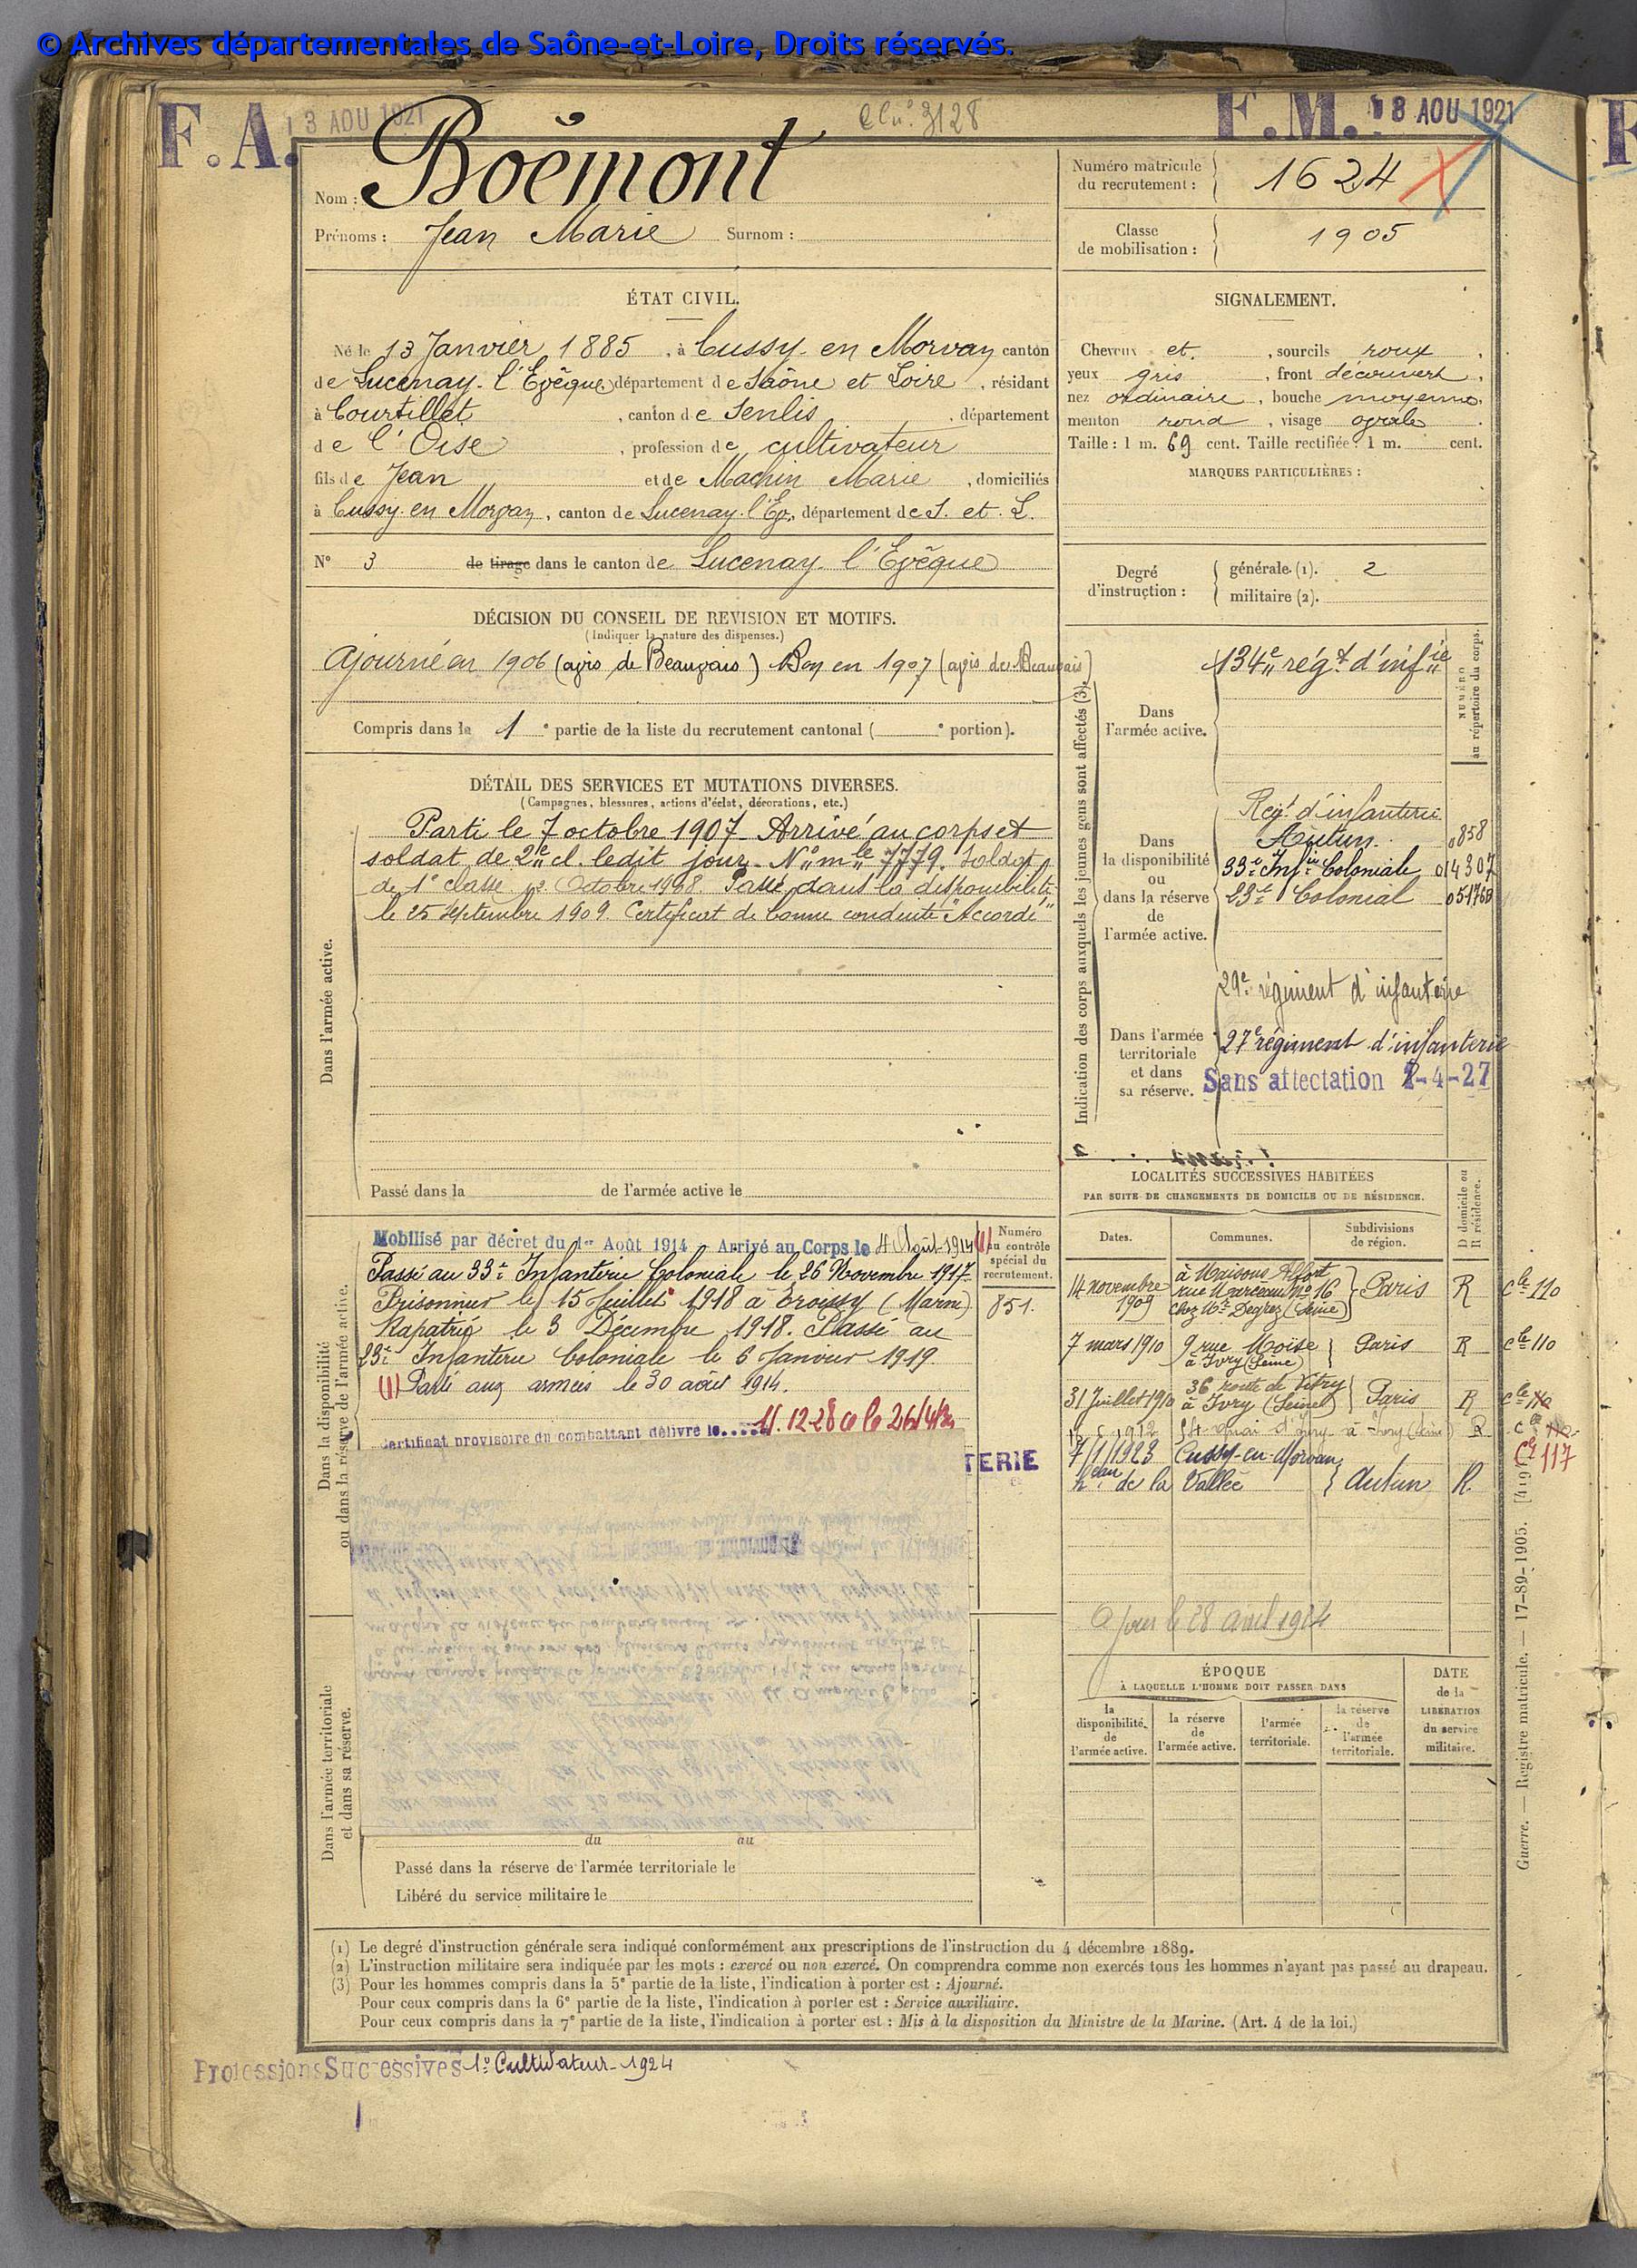 © Archives départementales de Saône-et-Loire, Droits réservés.
F.A. 13 AOU 1921
3128
F.M. 18 AOU 1921
Nom : Boëmont
Prénoms : Jean Marie Surnom :
Numéro matricule du recrutement : 1624
Classe de mobilisation : 1905
ÉTAT CIVIL.
Né le 13 Janvier 1885, à Cussy-en Morvan canton
de Lucenay-l'Evêque département de Saône et Loire, résidant
à Courtillet, canton de Senlis, département
de l'Oise, profession de cultivateur
fils de Jean et de Machin Marie, domiciliés
à Cussy-en Morvan, canton de Lucenay-l'Ev., département de S. et L.
N° 3 de tirage dans le canton de Lucenay-l'Evêque
SIGNALEMENT.
Cheveux et, sourcils roux,
yeux gris, front découvert,
nez ordinaire, bouche moyenne,
menton rond, visage ovale.
Taille : 1 m. 69 cent. Taille rectifiée : 1 m. cent.
MARQUES PARTICULIÈRES :
Degré d'instruction : générale (1). 2
militaire (2).
DÉCISION DU CONSEIL DE REVISION ET MOTIFS.
(Indiquer la nature des dispenses.)
Ajourné en 1906 (avis de Beauvais) Bon en 1907 (avis de Beauvais)
Compris dans la 1e partie de la liste du recrutement cantonal ( e portion).
DÉTAIL DES SERVICES ET MUTATIONS DIVERSES.
(Campagnes, blessures, actions d'éclat, décorations, etc.)
Dans l'armée active.
Parti le 7 octobre 1907. Arrivé au corps et
soldat de 2e cl. ledit jour. No mle 7779. Soldat
de 1e classe Octobre 1908. Passé dans la disponibilité
le 25 Septembre 1909. Certificat de bonne conduite "Accordé"
Passé dans la de l'armée active le
Indication des corps auxquels les jeunes gens sont affectés (3).
NUMÉRO au répertoire du corps.
Dans l'armée active.
134e régt d'infie
Dans la disponibilité ou dans la réserve de l'armée active.
Regt d'infanterie
Autun 0858
33e Infie Coloniale 014307
23e Colonial
Dans l'armée territoriale et dans sa réserve.
29e régiment d'infanterie
27e régiment d'infanterie
Sans affectation -4-27
Dans la disponibilité ou dans la réserve de l'armée active.
Mobilisé par décret du 1er Août 1914 Arrivé au Corps le 4 Août 1914 (1)
Passé au 33e Infanterie Coloniale le 26 Novembre 1917
Prisonnier le 15 Juillet 1918 à Troissy (Marne)
Rapatrié le 3 Décembre 1918. Passé au
23e Infanterie Coloniale le 6 Janvier 1919.
(1) Parti aux armées le 30 août 1914.
Certificat provisoire du combattant délivré le
TERIE
Numéro au contrôle spécial du recrutement.
851.
Dans l'armée territoriale et dans sa réserve.
du au
Passé dans la réserve de l'armée territoriale le
Libéré du service militaire le
LOCALITÉS SUCCESSIVES HABITÉES
PAR SUITE DE CHANGEMENTS DE DOMICILE OU DE RÉSIDENCE.
Dates. Communes. Subdivisions de région. D domicile ou R résidence.
14 novembre 1909 à Maisons Alfort rue Marceau No 16 chez Mr Degrez (Seine) Paris R Cle 110
7 mars 1910 9 rue Moïse à Ivry (Seine) Paris R Cle 110
31 Juillet 1910 36 route de Vitry à Ivry (Seine) Paris R Cle 110
1912 quai d'Ivry à Ivry (Seine) R
7/1/1923 Cussy-en-Morvan
heau de la Vallée Autun R. Cle 117
A jour le 28 avril 1924
ÉPOQUE
À LAQUELLE L'HOMME DOIT PASSER DANS
la disponibilité de l'armée active.
la réserve de l'armée active.
l'armée territoriale.
la réserve de l'armée territoriale.
DATE de la LIBÉRATION du service militaire.
Guerre. — Registre matricule. — 17-89-1905.
(1) Le degré d'instruction générale sera indiqué conformément aux prescriptions de l'instruction du 4 décembre 1889.
(2) L'instruction militaire sera indiquée par les mots : exercé ou non exercé. On comprendra comme non exercés tous les hommes n'ayant pas passé au drapeau.
(3) Pour les hommes compris dans la 5e partie de la liste, l'indication à porter est : Ajourné.
Pour ceux compris dans la 6e partie de la liste, l'indication à porter est : Service auxiliaire.
Pour ceux compris dans la 7e partie de la liste, l'indication à porter est : Mis à la disposition du Ministre de la Marine. (Art. 4 de la loi.)
Professions Successives 1o Cultivateur - 1924